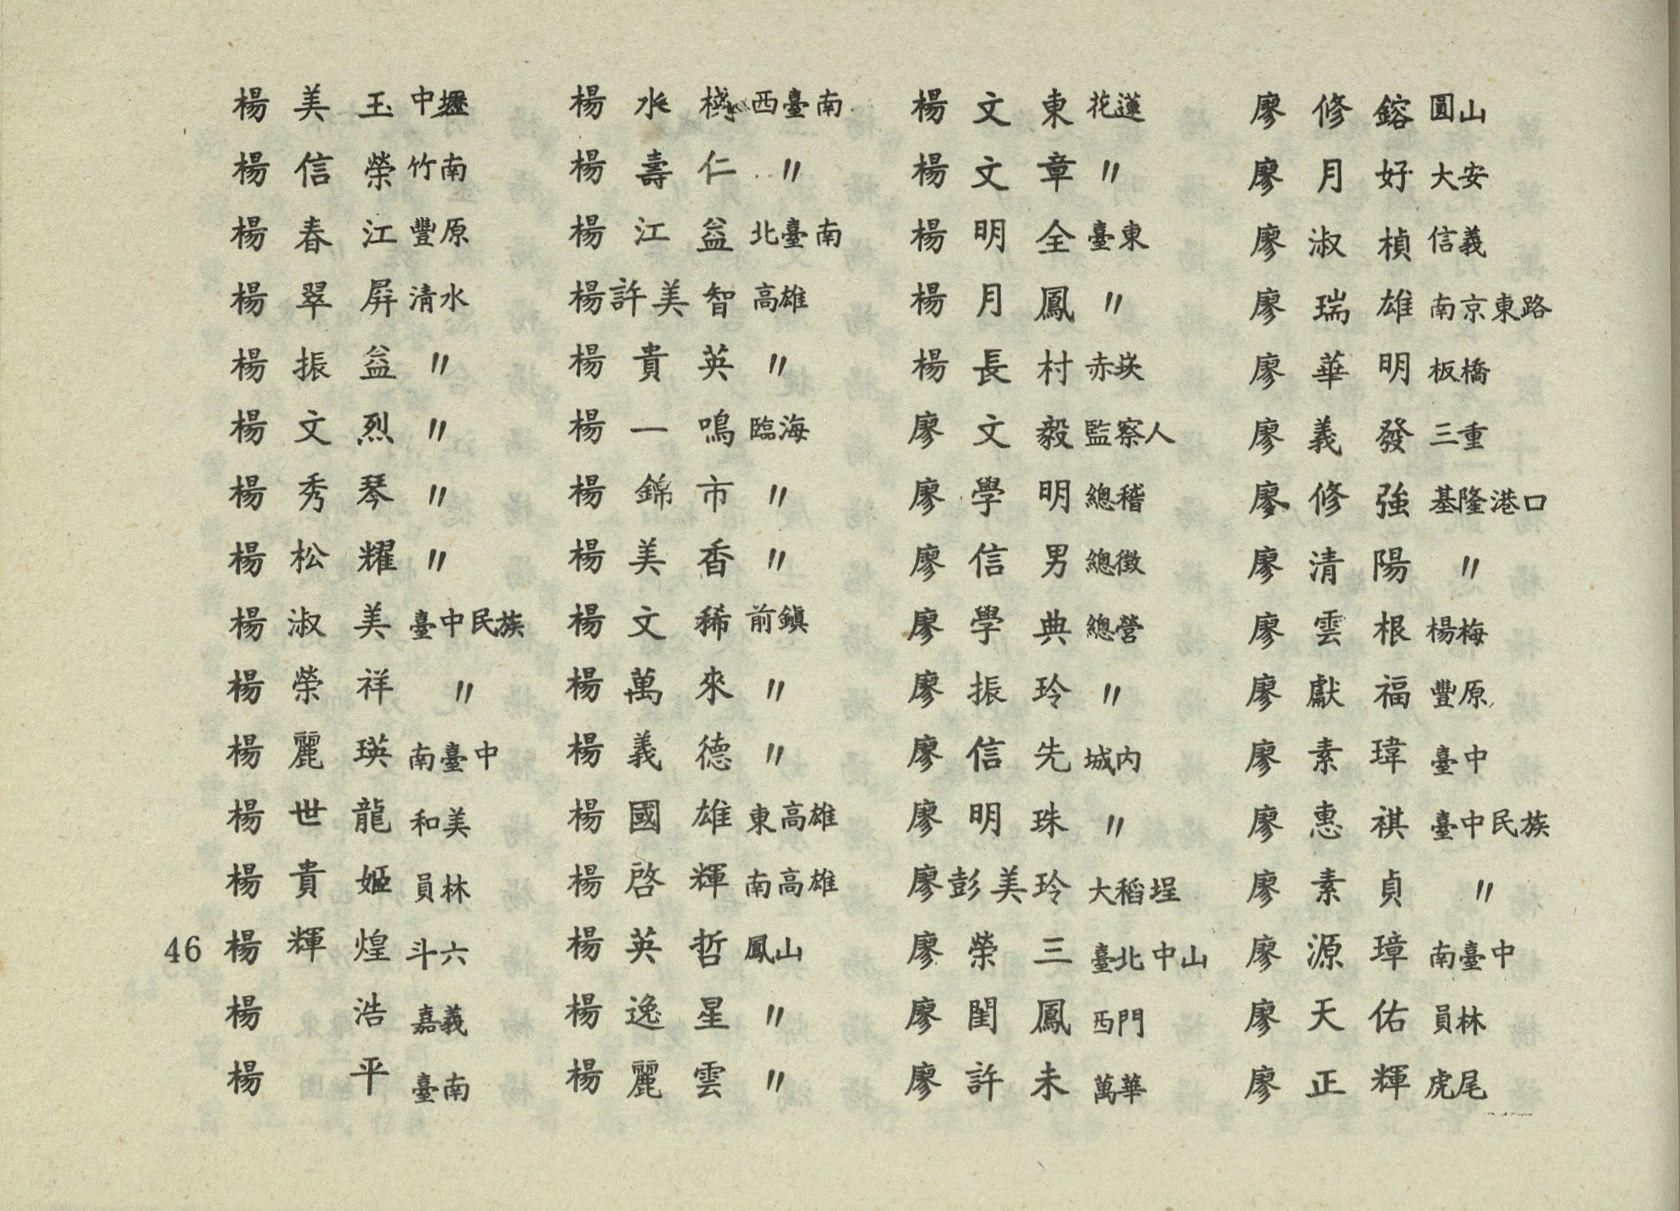 楊美玉 中壢
楊信榮 竹南
楊春江 豐原
楊翠屏 清水
楊振益 〃
楊文烈 〃
楊秀琴 〃
楊松耀 〃
楊淑美 臺中民族
楊榮祥 〃
楊麗瑛 南臺中
楊世龍 和美
楊貴姬 員林
46
楊輝煌 斗六
楊浩 嘉義
楊平 臺南
楊水 西臺南
楊壽仁 〃
楊江益 北臺南
楊許美智 高雄
楊貴英 〃
楊一鳴 臨海
楊錦市 〃
楊美香 〃
楊文稀 前鎮
楊萬來 〃
楊義德 〃
楊國雄 東高雄
楊啓輝 南高雄
楊英哲 鳳山
楊逸星 〃
楊麗雲 〃
楊文東 花蓮
楊文章 〃
楊明全 臺東
楊月鳳 〃
楊長村 赤崁
廖文毅 監察人
廖學明 總稽
廖信男 總徵
廖學典 總營
廖振玲 〃
廖信先 城內
廖明珠 〃
廖彭美玲 大稻埕
廖榮三 臺北中山
廖閨鳳 西門
廖許未 萬華
廖修鎔 圓山
廖月好 大安
廖淑楨 信義
廖瑞雄 南京東路
廖華明 板橋
廖義發 三重
廖修強 基隆港口
廖清陽 〃
廖雲根 楊梅
廖獻福 豐原
廖素瑋 臺中
廖惠祺 臺中民族
廖素貞 〃
廖源璋 南臺中
廖天佑 員林
廖正輝 虎尾